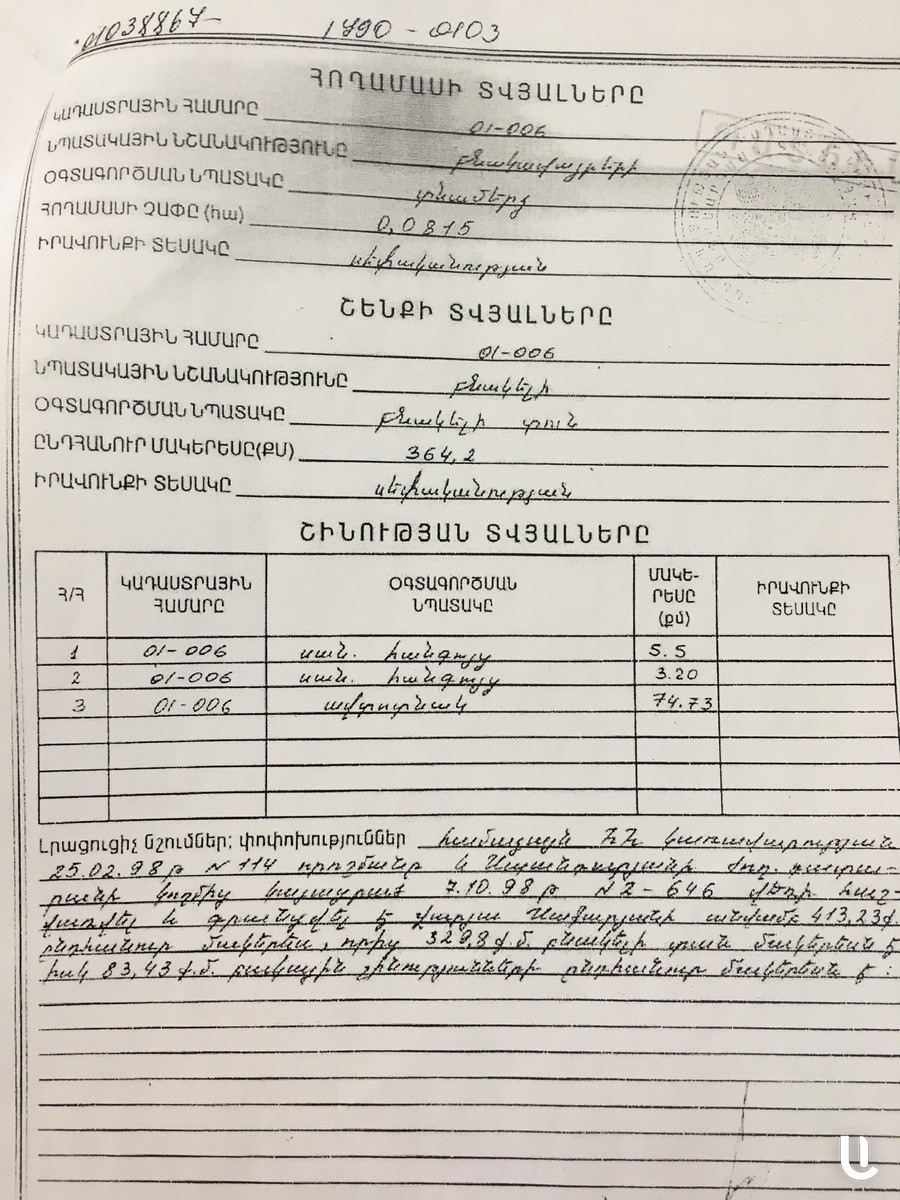 01038867
1790 - 0103
ՀՈՂԱՄԱՍԻ ՏՎՅԱԼՆԵՐԸ
ԿԱԴԱՍՏՐԱՅԻՆ ՀԱՄԱՐԸ 01-006
ՆՊԱՏԱԿԱՅԻՆ ՆՇԱՆԱԿՈՒԹՅՈՒՆԸ բնակավայրերի
ՕԳՏԱԳՈՐԾՄԱՆ ՆՊԱՏԱԿԸ տնամերձ
ՀՈՂԱՄԱՍԻ ՉԱՓԸ (հա) 0,0815
ԻՐԱՎՈՒՆՔԻ ՏԵՍԱԿԸ սեփականության
ՇԵՆՔԻ ՏՎՅԱԼՆԵՐԸ
ԿԱԴԱՍՏՐԱՅԻՆ ՀԱՄԱՐԸ 01-006
ՆՊԱՏԱԿԱՅԻՆ ՆՇԱՆԱԿՈՒԹՅՈՒՆԸ բնակելի
ՕԳՏԱԳՈՐԾՄԱՆ ՆՊԱՏԱԿԸ բնակելի տուն
ԸՆԴՀԱՆՈՒՐ ՄԱԿԵՐԵՍԸ(ՔՄ) 364,2
ԻՐԱՎՈՒՆՔԻ ՏԵՍԱԿԸ սեփականության
ՇԻՆՈՒԹՅԱՆ ՏՎՅԱԼՆԵՐԸ
Հ/Հ ԿԱԴԱՍՏՐԱՅԻՆ ՀԱՄԱՐԸ ՕԳՏԱԳՈՐԾՄԱՆ ՆՊԱՏԱԿԸ ՄԱԿԵ-ՐԵՍԸ (քմ) ԻՐԱՎՈՒՆՔԻ ՏԵՍԱԿԸ
1 01-006 սան. հանգույց 5.5
2 01-006 սան. հանգույց 3.20
3 01-006 ավտոտնակ 74.73
Լրացուցիչ նշումներ; փոփոխություններ համաձայն ՀՀ կառավարության
25.02.98թ N 114 որոշմանը և ժող. դատա-
րանի կողմից կայացրած 7.10.98թ N 2-646 վճռի հաշ-
վառվել և գրանցվել է անվամբ 413,23ք.
ընդհանուր մակերես, որից 329,8 ք.մ. բնակելի տան մակերեսն է
իսկ 83,43 ք.մ. բակային շինությունների ընդհանուր մակերեսն է: